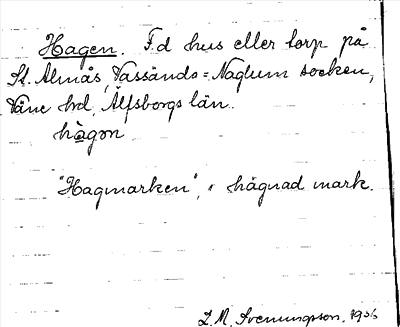 Hagen. F.d hus eller torp på
St. Almås, Vassända=Naglum socken,
Väne hd, Älfsborgs län.
hagon
"Hagmarken", i hägnad mark.
L. M. Svenungsson. 1936